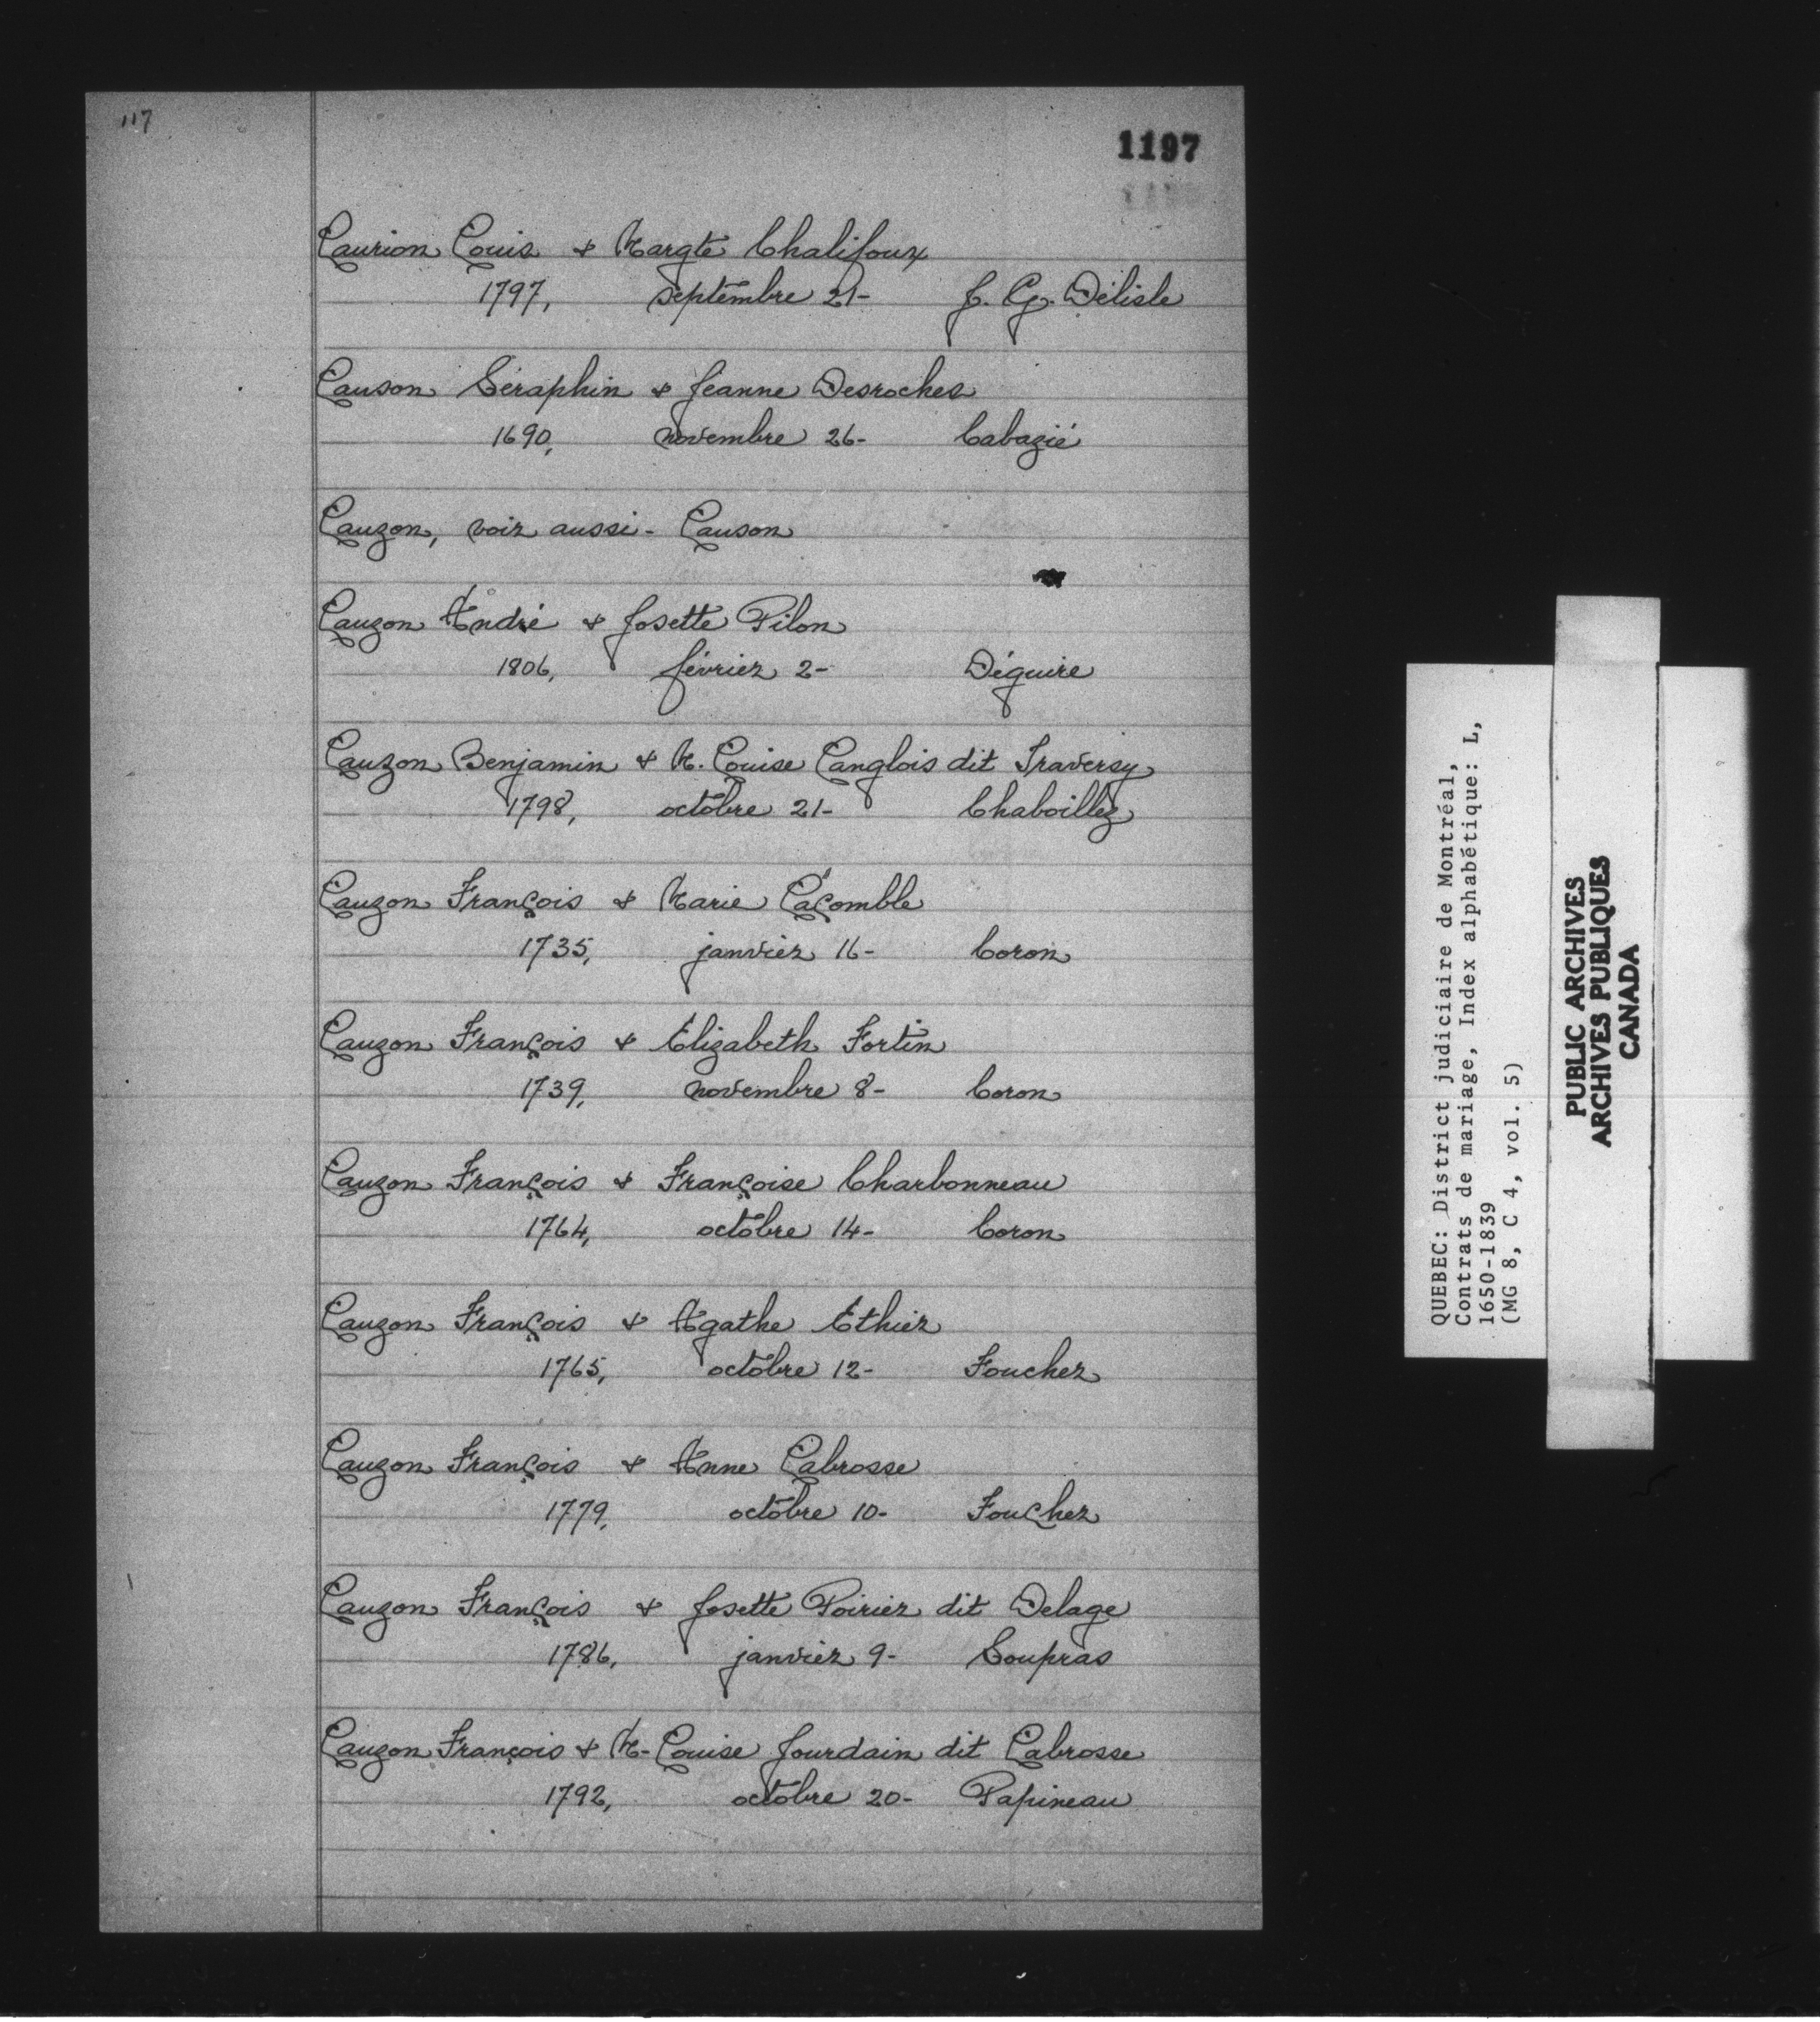 117
1197
Laurion Louis & Margte Chalifoux
1797, septembre 21- J. G. Délisle
Lauson Séraphin & Jeanne Desroches
1690, novembre 26- Cabazié
Lauzon, voir aussi- Lauson
Lauzon André & Josette Pilon
1806, février 2- Déguire
Lauzon Benjamin & M. Louise Langlois dit Traversy
1798, octobre 21- Chaboillez
Lauzon François & Marie Lacomble
1735, janvier 16- Coron
Lauzon François & Elizabeth Fortin
1739, novembre 8- Coron
Lauzon François & Françoise Charbonneau
1764, octobre 14- Coron
Lauzon François & Agathe Ethier
1765, octobre 12- Foucher
Lauzon François & Anne Labrosse
1779, octobre 10- Foucher
Lauzon François & Josette Poirier dit Delage
1786, janvier 9- Soupras
Lauzon François & M- Louise Jourdain dit Labrosse
1792, octobre 20- Papineau
QUEBEC: District judiciaire de Montréal,
Contrats de mariage, Index alphabétique: L,
1650-1839
(MG 8, C 4, vol. 5)
PUBLIC ARCHIVES
ARCHIVES PUBLIQUES
CANADA